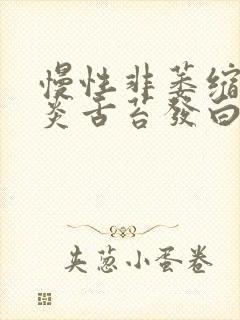 慢性非萎缩
炎舌苔發白
夹葱小蛋卷